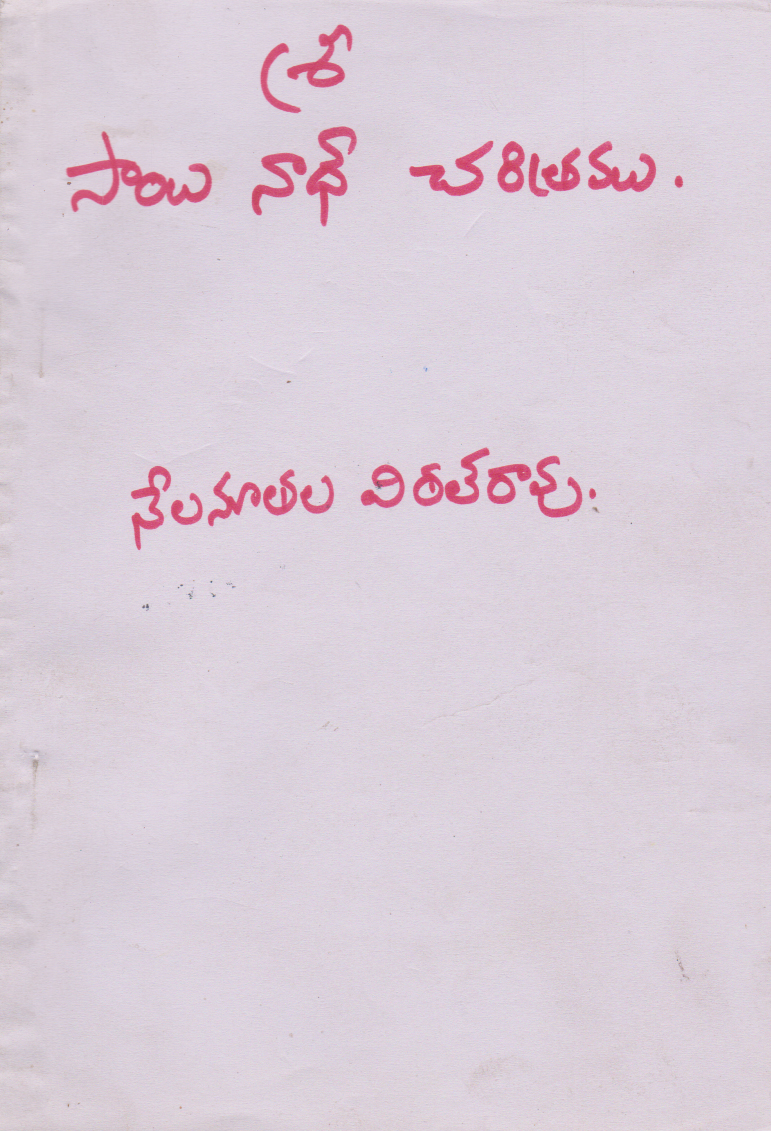 శ్రీ
సాయి నాథ్ చరిత్రము.
నేలనూతల విఠల్‌రావు.